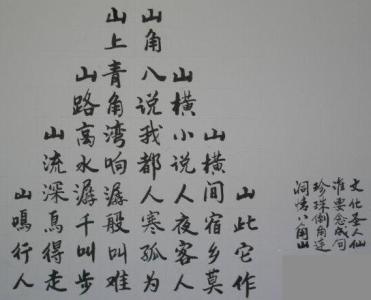 文化圣人仙
谁要念成句
珍珠倒角连
洞悟八角山
山此它作
山横间宿乡莫
山横小说人夜客人
山角八说我都人寒孤为
山上青角湾响潺般叫难
山路高水潺千叫步
山流深鸟得走
山鸣行人